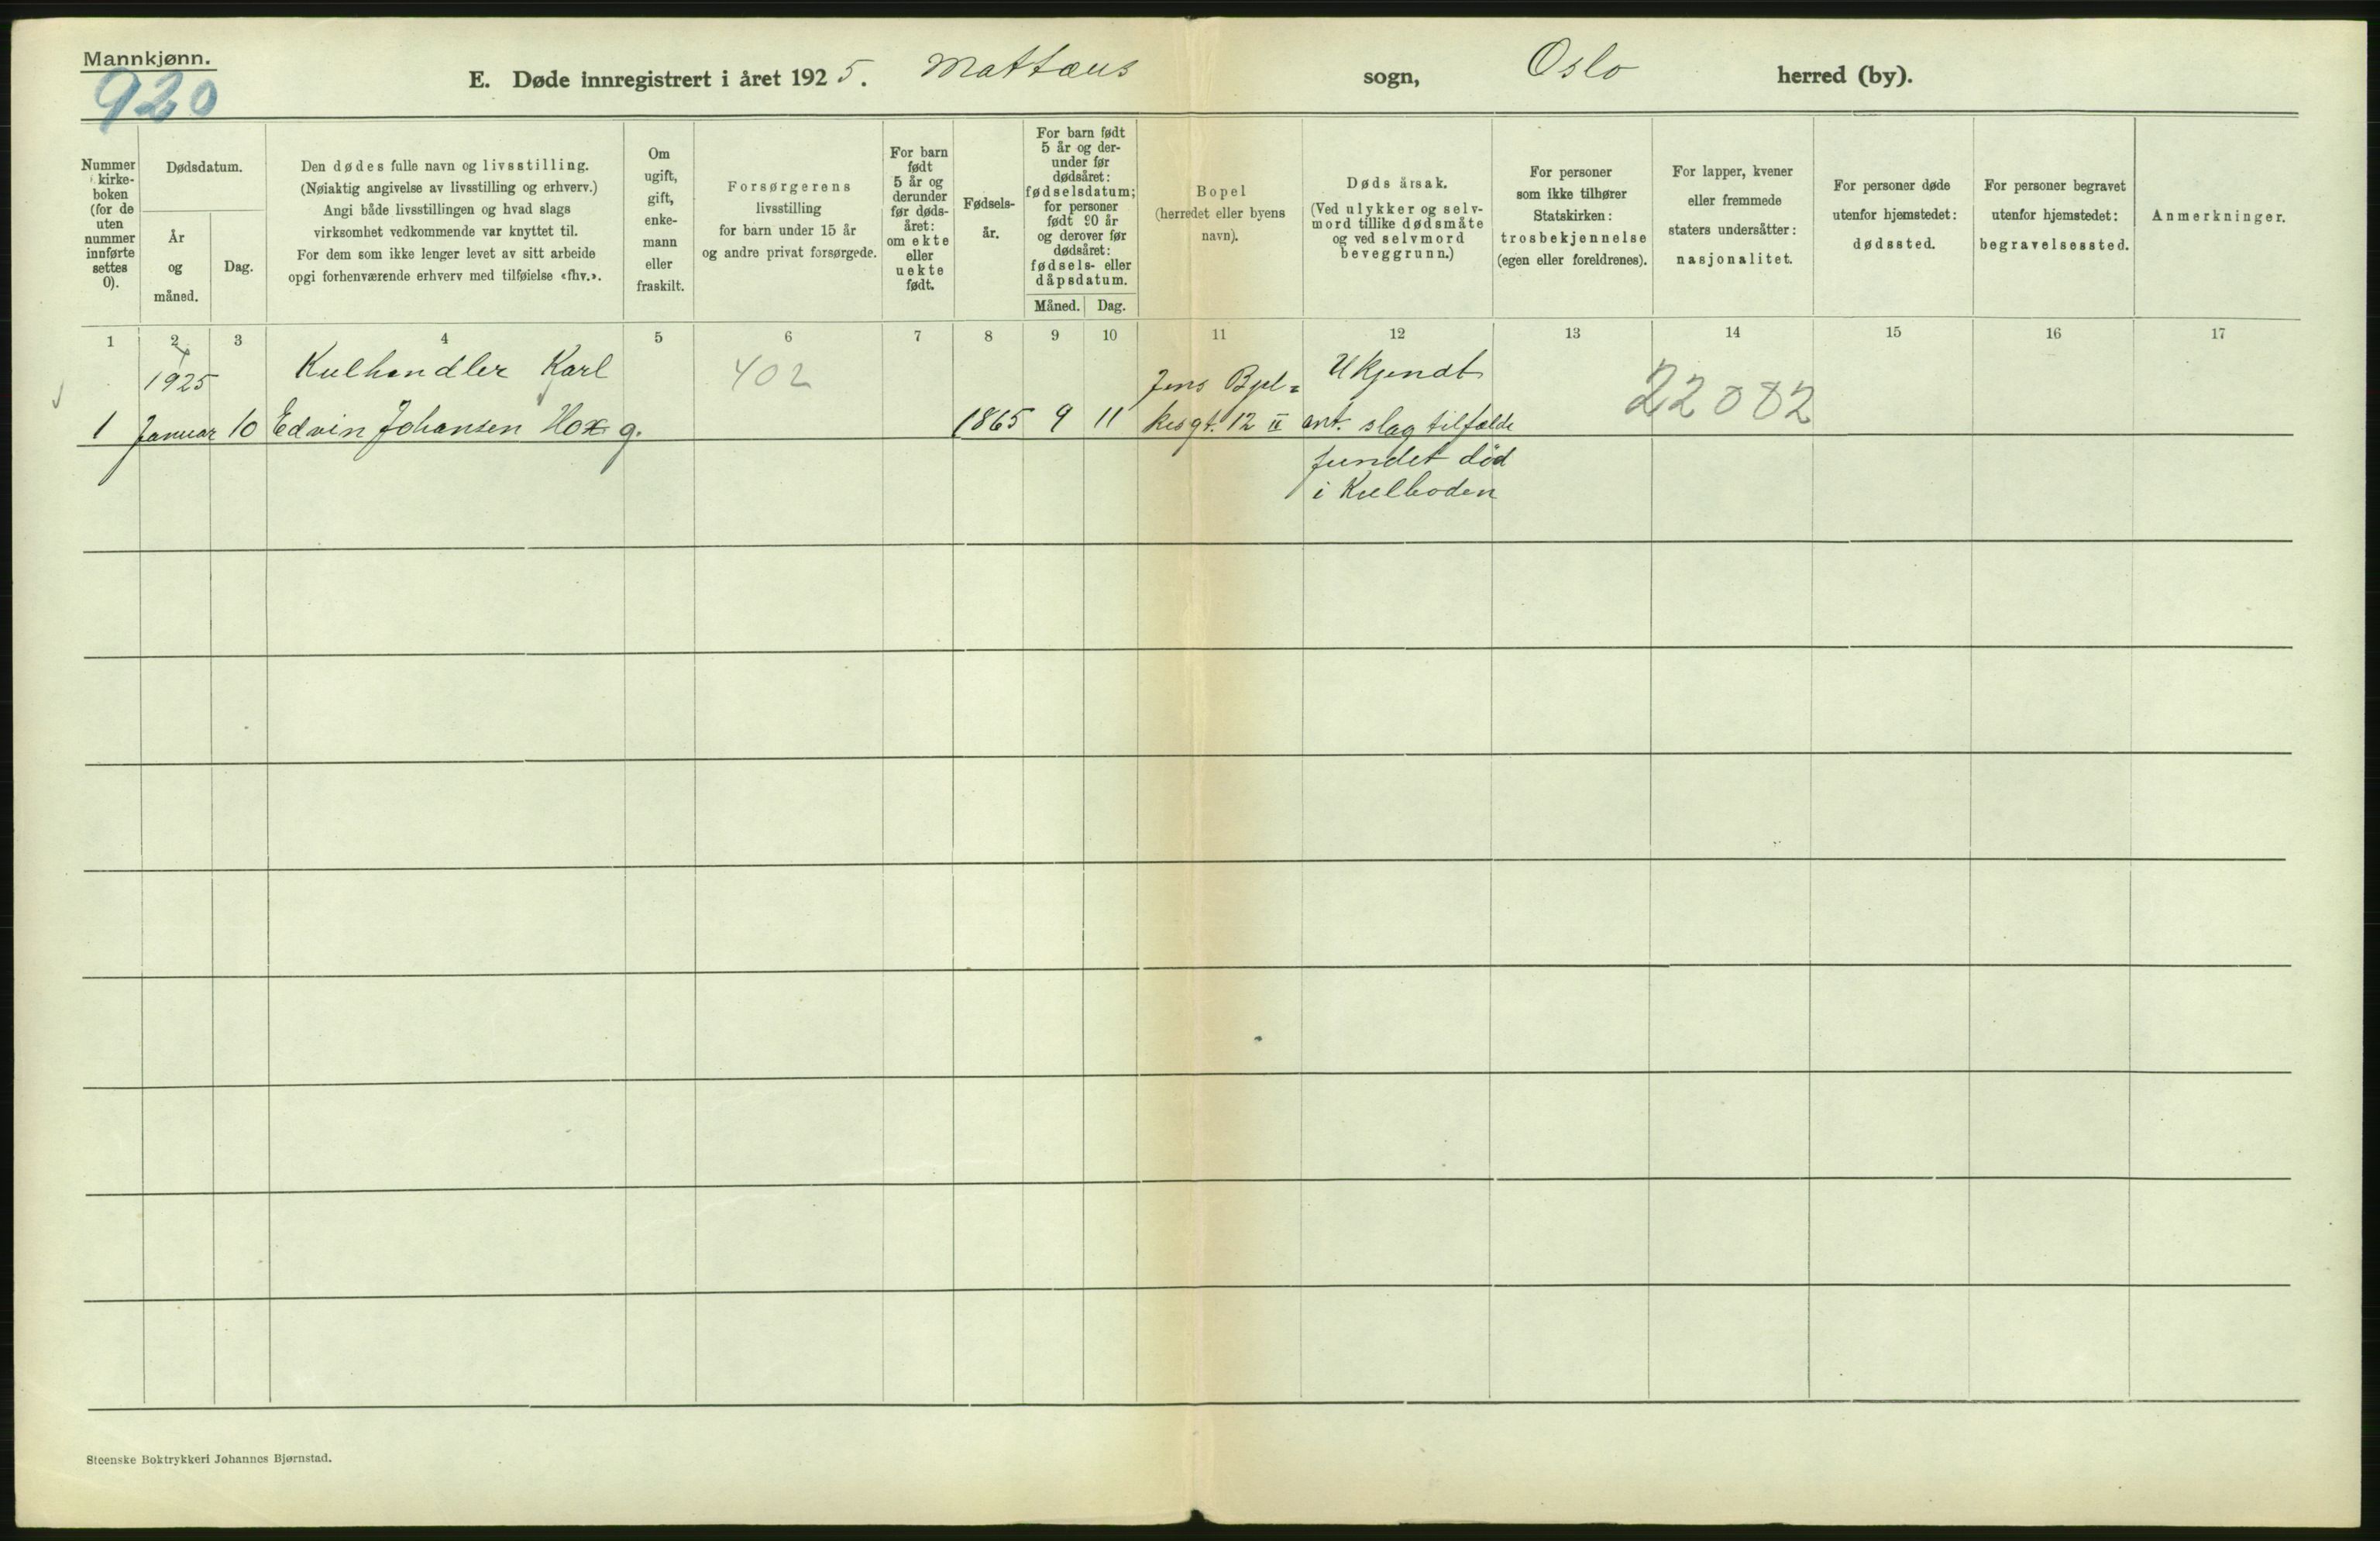 Mannkjønn.
920
E. Døde innregistrert i året 1925. Mattæus sogn, Oslo herred (by).
Nummer
kirke-
boken
(for de
uten
nummer
innførte
settes
0).
Dødsdatum.
År
og
måned.
Dag.
Den dødes fulle navn og livsstilling.
(Nøiaktig angivelse av livsstilling og erhverv.)
Angi både livsstillingen og hvad slags
virksomhet vedkommende var knyttet til.
For dem som ikke lenger levet av sitt arbeide
opgi forhenværende erhverv med tilføielse «fhv.».
Om
ugift,
gift,
enke-
mann
eller
fraskilt.
Forsørgerens
livsstilling
for barn under 15 år
og andre privat forsørgede.
For barn
født
5 år og
derunder
før døds-
året:
om ekte
eller
uekte
født.
Fødsels-
år.
For barn født
5 år og der-
under før
dødsåret:
fødselsdatum;
for personer
født 90 år
og derover før
dødsåret:
fødsels- eller
dåpsdatum.
Måned. Dag.
Bopel
(herredet eller byens
navn).
Dødsårsak.
(Ved ulykker og selv-
mord tillike dødsmåte
og ved selvmord
beveggrunn.)
For personer
som ikke tilhører
Statskirken:
trosbekjennelse
(egen eller foreldrenes).
For lapper, kvener
eller fremmede
staters undersåtter:
nasjonalitet.
For personer døde
utenfor hjemstedet:
dødssted.
For personer begravet
utenfor hjemstedet:
begravelsessted.
Anmerkninger.
1 2 3 4 5 6 7 8 9 10 11 12 13 14 15 16 17
1925 Kulhandler Karl 402 Jens Bjel= Ukjendt 22082
1 Januar 10 Edvin Johansen Hox g. 1865 9 11 kesgt. 12 II ant. slagtilfælde
fundet død
i Kulboden
Steenske Boktrykkeri Johannes Bjørnstad.